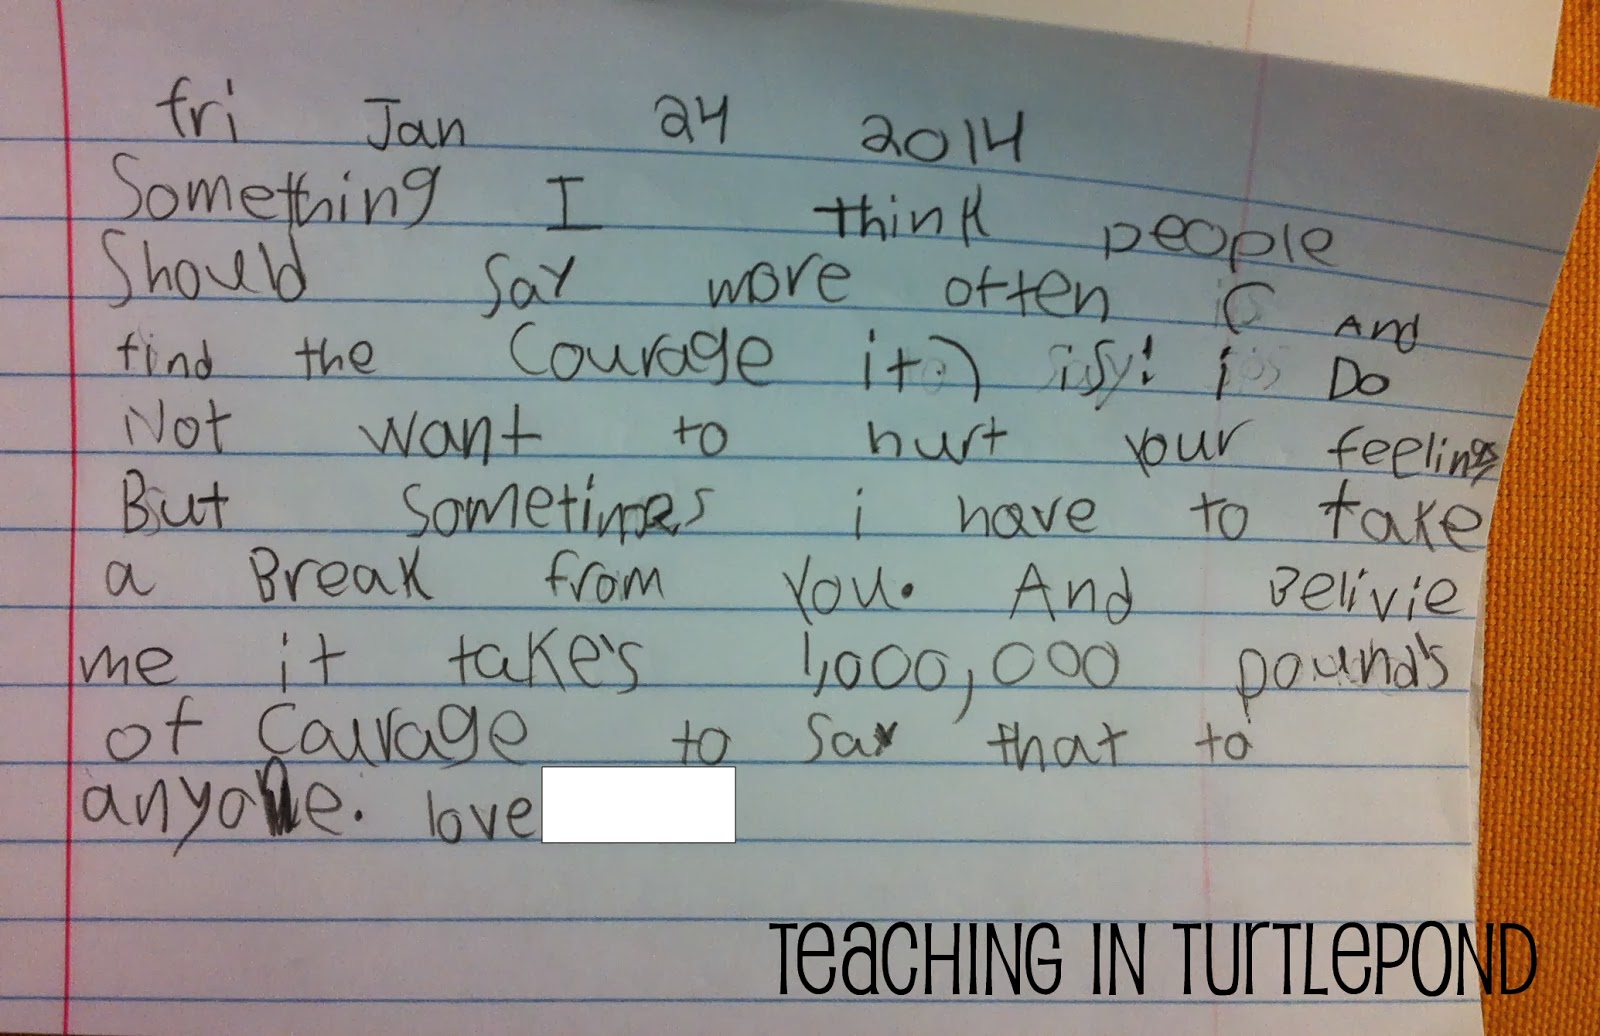 fri Jan 24 2014
Something I think people
Should Say more often ( And
find the Courage it) is! i Do
Not want to hurt your feelings
But sometimes i have to take
a Break from you. And Belivie
me it take's 1,000,000 pound's
of Courage to Say that to
anyone. love
TEACHING IN TURTLEPOND